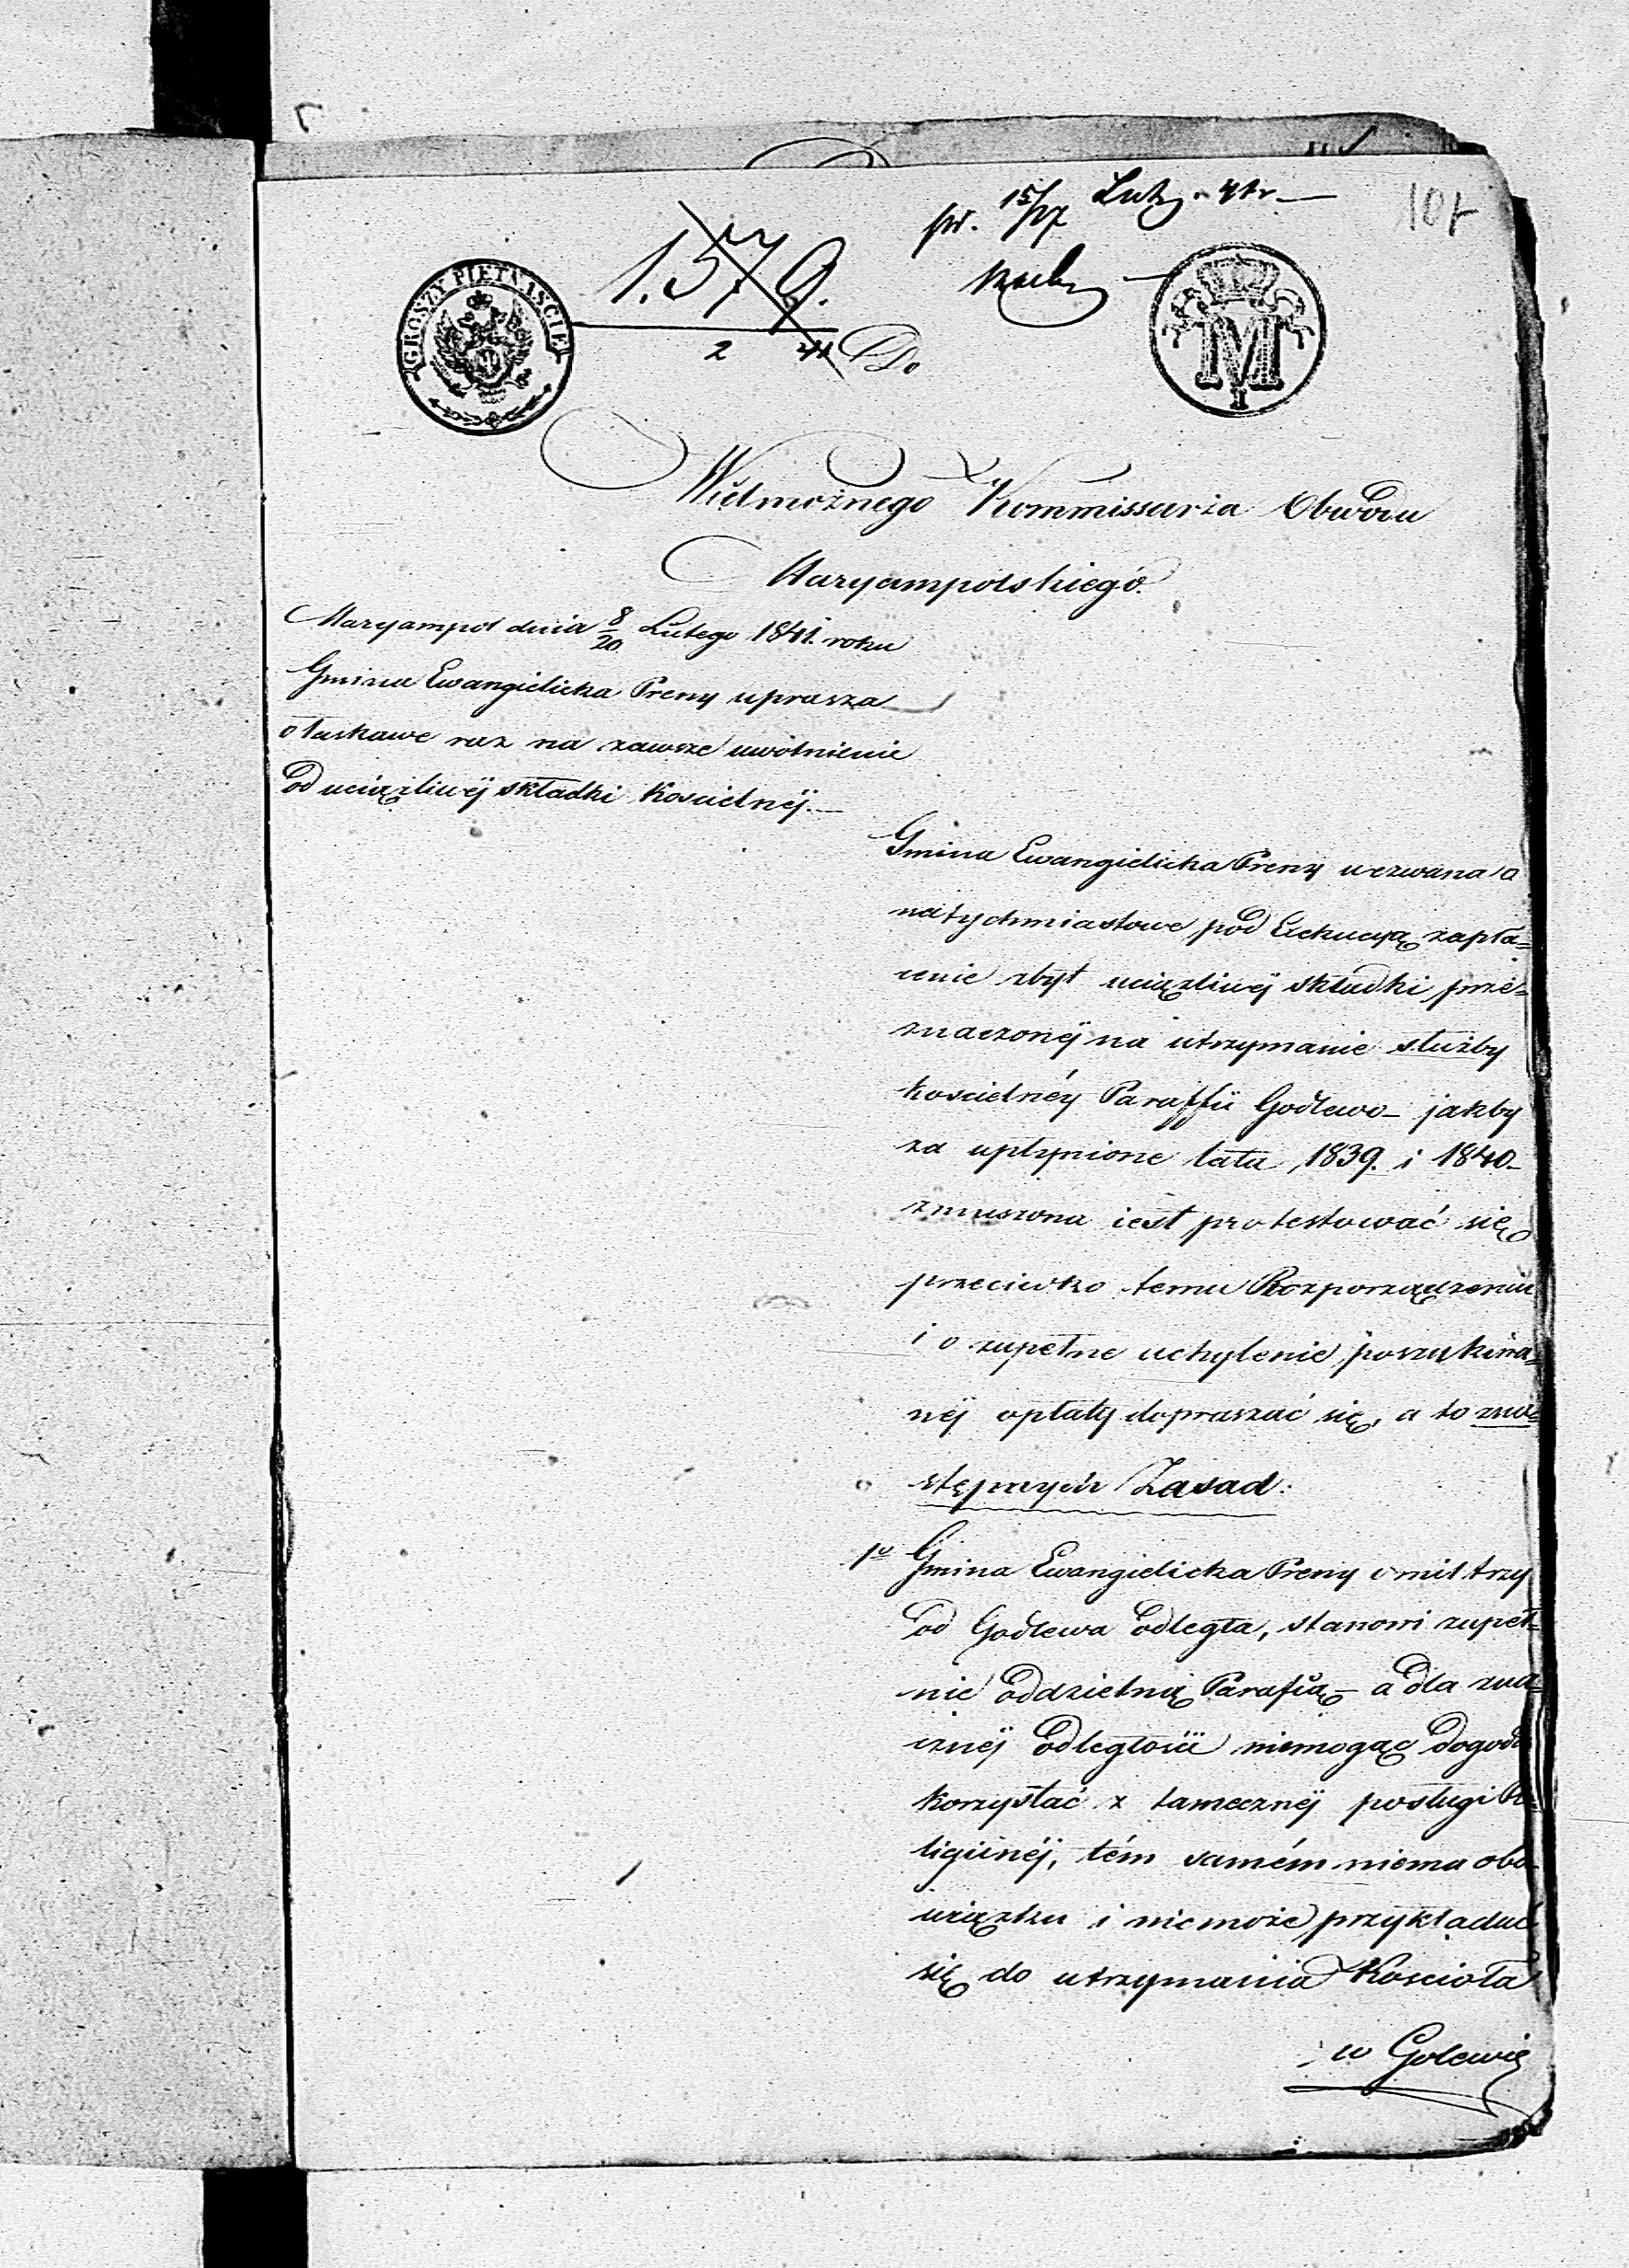 pr. 15/27 Lutg. 41 r.
107
1.579.
2 41
GROSZY PIĘTNAŚCIE
M
II
Do
Wielmożnego Kommissarza Obwodu
Maryampolskiego.
Maryampol dnia 8/20 Lutego 1841. roku
Gmina Ewangielicka Preny uprasza
o łaskawe raz na zawsze uwolnienie
od uciązliwéj składki Koscielnéj.
Gmina Ewangielicka Preny wezwana o
natychmiastowe pod Exekucyą zapła=
cenie zbyt uciązliwéj składki prze=
znaczonéj na utrzymanie służby
koscielnéy Paraffii Godlewo – jakby
za upłynione lata 1839. i 1840 –
zmuszona iest protestować się
przeciwko temu Rozporządzeniu
i o zupełne uchylenie poszukiwa=
néj opłaty dopraszać się, a to z nas=
stępnych Zasad:
1o Gmina Ewangielicka Preny o mil trzy
od Godlewa odległa, stanowi zupeł=
nie oddzielną Parafią – a dla zna=
cznéj odległości niemogąc dogod
korzystać z tamecznéj posługi Re=
ligiinéj, tém samém niema obo=
wiązku i niemoże przykładać
się do utrzymania Kosciola
w Golewie